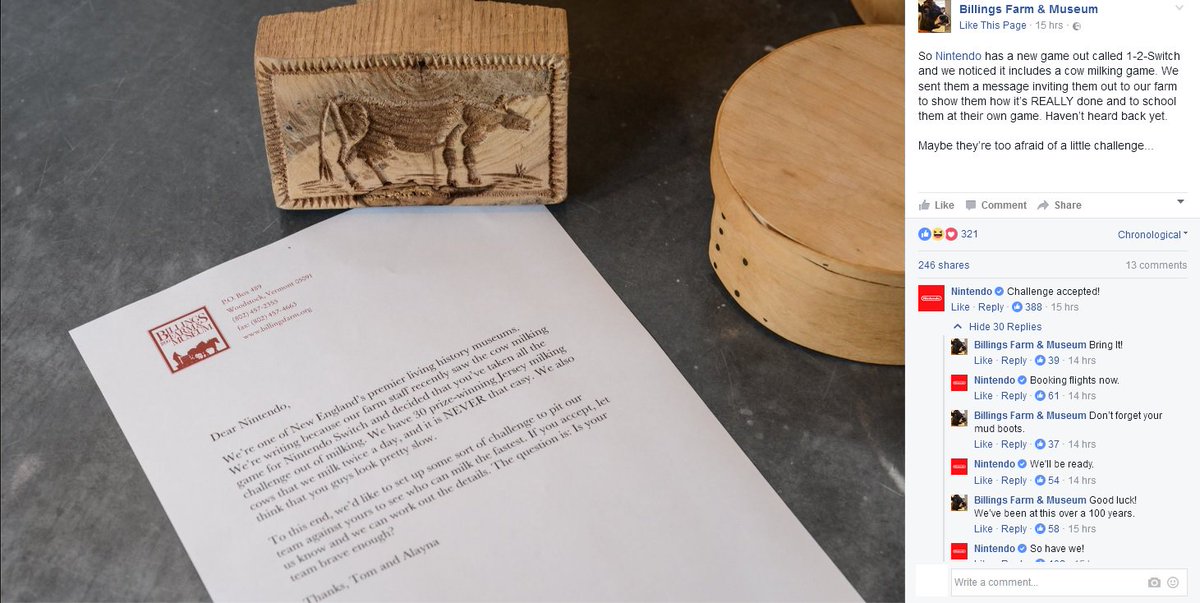 BILLINGS
FARM &
MUSEUM
P.O. Box 489
Woodstock, Vermont 05091
(802) 457-2355
fax: (802) 457-4663
www.billingsfarm.org
Dear Nintendo,
We're one of New England's premier living history museums.
We're writing because our farm staff recently saw the cow milking
game for Nintendo Switch and decided that you've taken all the
challenge out of milking. We have 30 prize-winning Jersey milking
cows that we milk twice a day, and it is NEVER that easy. We also
think that you guys look pretty slow.
To this end, we'd like to set up some sort of challenge to pit our
team against yours to see who can milk the fastest. If you accept, let
us know and we can work out the details. The question is: Is your
team brave enough?
Thanks, Tom and Alayna
Billings Farm & Museum
Like This Page · 15 hrs ·
So Nintendo has a new game out called 1-2-Switch
and we noticed it includes a cow milking game. We
sent them a message inviting them out to our farm
to show them how it's REALLY done and to school
them at their own game. Haven't heard back yet.
Maybe they're too afraid of a little challenge...
Like Comment Share
321 Chronological
246 shares 13 comments
Nintendo Challenge accepted!
Like · Reply · 388 · 15 hrs
Hide 30 Replies
Billings Farm & Museum Bring It!
Like · Reply · 39 · 14 hrs
Nintendo Booking flights now.
Like · Reply · 61 · 14 hrs
Billings Farm & Museum Don't forget your
mud boots.
Like · Reply · 37 · 14 hrs
Nintendo We'll be ready.
Like · Reply · 54 · 14 hrs
Billings Farm & Museum Good luck!
We've been at this over a 100 years.
Like · Reply · 58 · 15 hrs
Nintendo So have we!
Write a comment...